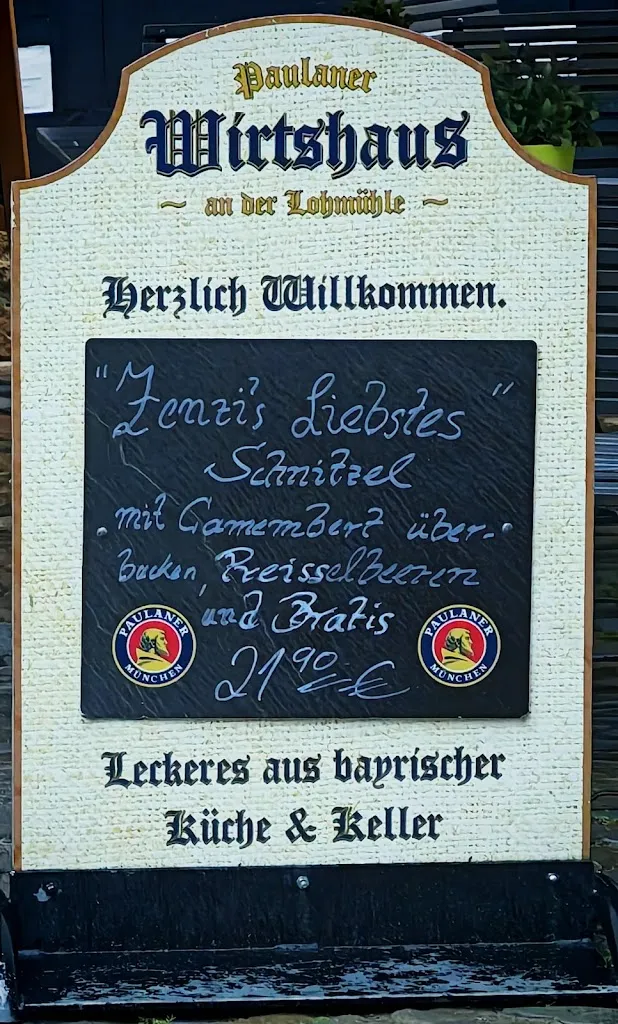 Paulaner
Wirtshaus
~ an der Lohmühle ~
Herzlich Willkommen.
"Zenzi's Liebstes"
Schnitzel
mit Camembert über-
backen, Preisselbeeren
und Bratis
21⁹⁰ €
PAULANER
MÜNCHEN
PAULANER
MÜNCHEN
Leckeres aus bayrischer
Küche & Keller